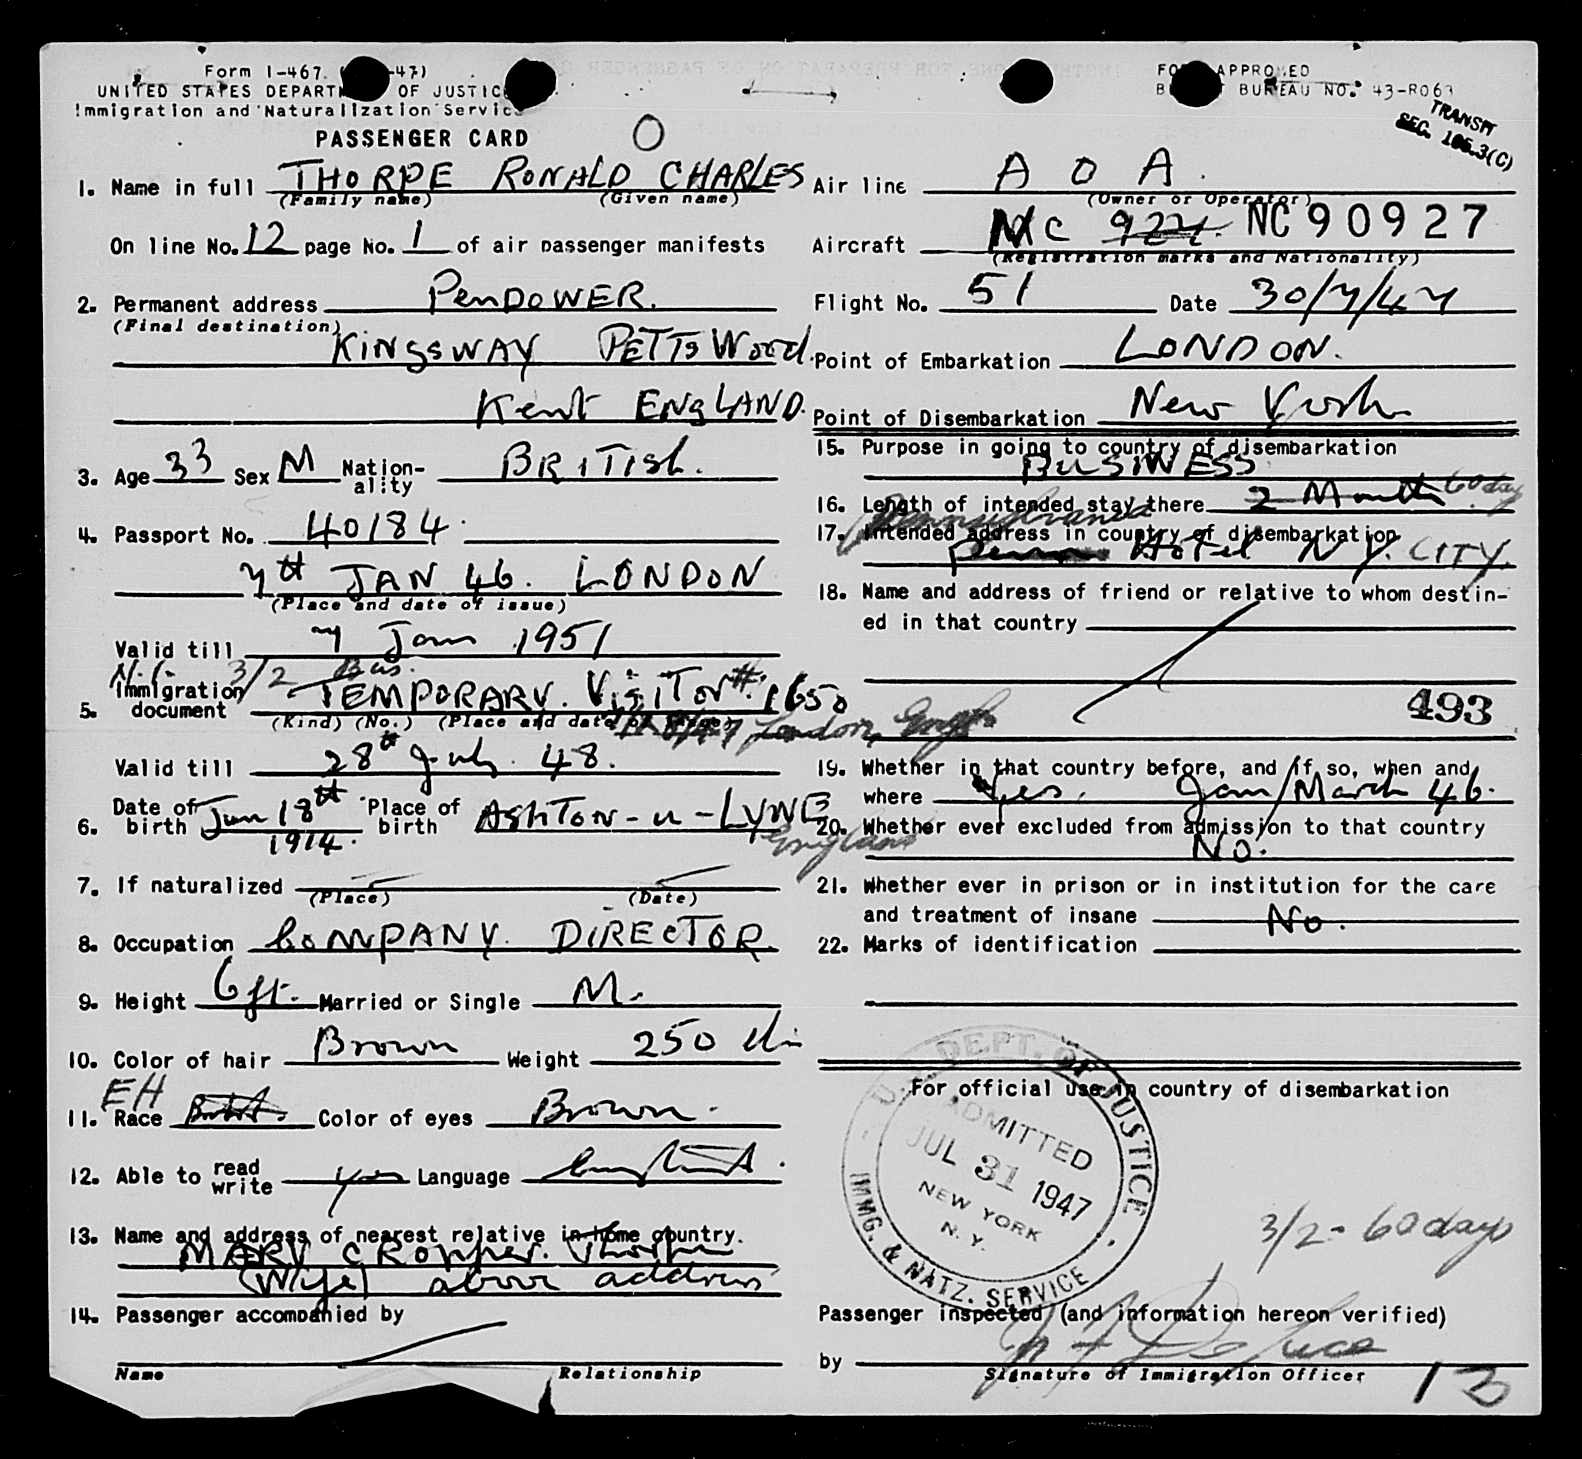 Form I-467 -47)
UNITED STATES DEPARTMENT OF JUSTICE
Immigration and Naturalization Service
PASSENGER CARD
O
FORM APPROVED
BUDGET BUREAU NO. 43-R063
TRANSIT
SEC. 105.3(C)
1. Name in full THORPE RONALD CHARLES
(Family name) (Given name)
On line No. 12 page No. 1 of air passenger manifests
2. Permanent address PENDOWER.
(Final destination)
KINGSWAY PETTS Wood.
Kent ENGLAND.
3. Age 33 Sex M Nationality BRITISH.
4. Passport No. 40184.
7th JAN 46. LONDON
(Place and date of issue)
Valid till 7 Jan 1951
3/2 Bus.
5. Immigration document TEMPORARY. VISITOR #1650
(Kind) (No.) (Place and date of issue)
London, Engl
Valid till 28th July. 48.
6. Date of birth Jun 18th 1914. Place of birth ASHTON-u-LYNE
England
7. If naturalized
(Place) (Date)
8. Occupation COMPANY. DIRECTOR.
9. Height 6ft. Married or Single M.
10. Color of hair Brown Weight 250
EH
11. Race Color of eyes Brown.
12. Able to read write yes Language
13. Name and address of nearest relative in home country.
MARY CROPPER. Thorpe
(Wife) above address
14. Passenger accompanied by
Name Relationship
Air line A O A.
(Owner or Operator)
Aircraft NC 924. NC90927
(Registration marks and Nationality)
Flight No. 51 Date 30/7/47
Point of Embarkation LONDON.
Point of Disembarkation New York
15. Purpose in going to country of disembarkation
BUSINESS
16. Length of intended stay there 2 Months 60 day
Pennsylvania
17. Intended address in country of disembarkation
Hotel N.Y. CITY.
18. Name and address of friend or relative to whom destin-
ed in that country
493
19. Whether in that country before, and if so, when and
where Yes. Jan/March 46.
20. Whether ever excluded from admission to that country
No.
21. Whether ever in prison or in institution for the care
and treatment of insane No.
22. Marks of identification
For official use in country of disembarkation
U.S. DEPT. OF JUSTICE
ADMITTED
JUL 31 1947
NEW YORK
N. Y.
IMMG. & NATZ. SERVICE
3/2 - 60 days
Passenger inspected (and information hereon verified)
by
Signature of Immigration Officer
13